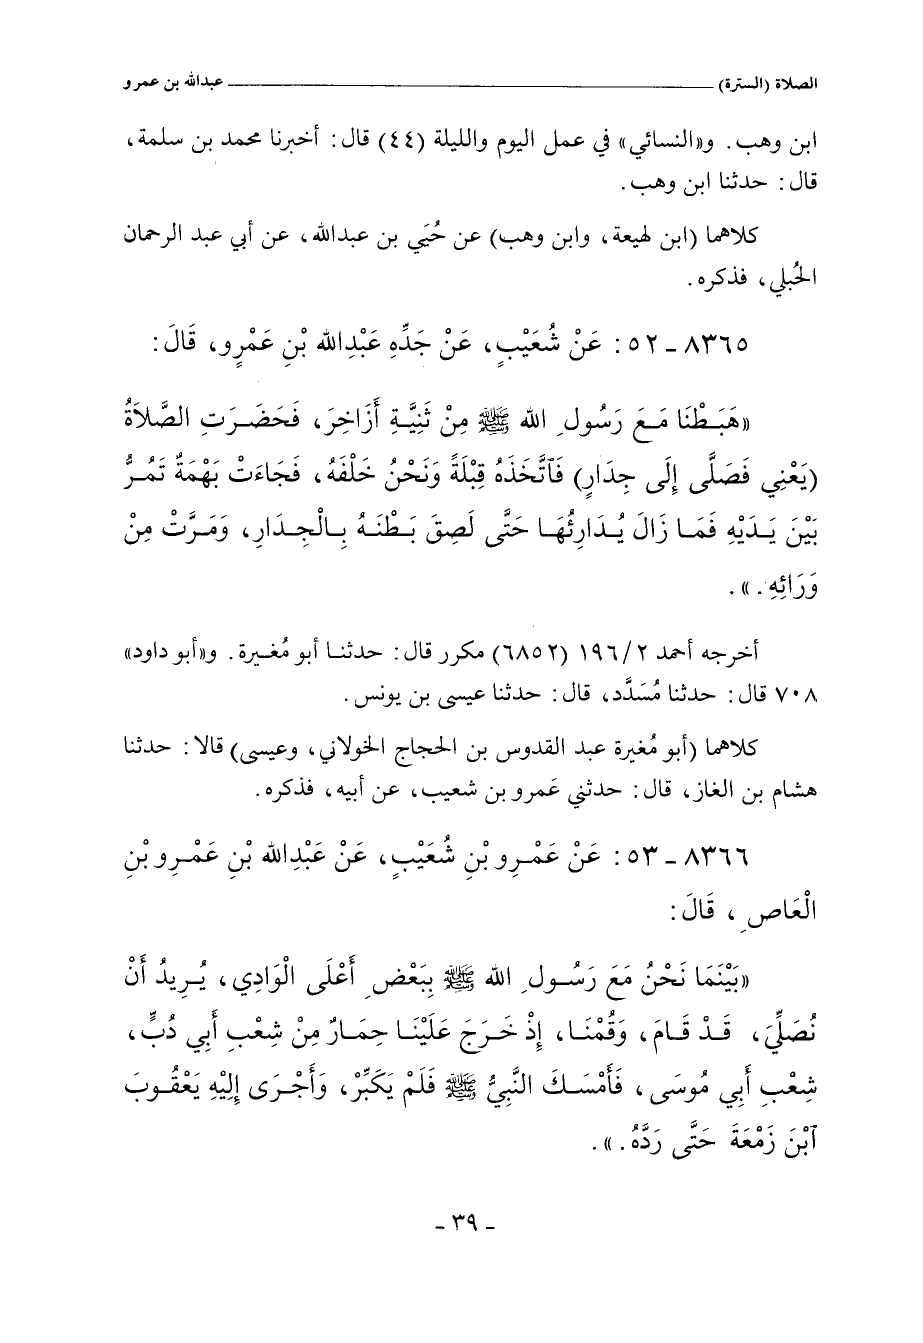 الصلاة (السترة) ــــــــــــــــــــــــــــــــــــ عبدالله بن عمرو
ابن وهب. و«النسائي» في عمل اليوم والليلة (٤٤) قال: أخبرنا محمد بن سلمة،
قال: حدثنا ابن وهب.
كلاهما (ابن لهيعة، وابن وهب) عن حُيَي بن عبدالله، عن أبي عبد الرحمان
الحُبلي، فذكره.
٨٣٦٥ ـ ٥٢: عَنْ شُعَيْبٍ، عَنْ جَدِّهِ عَبْدِالله بْنِ عَمْرٍو، قَالَ:
«هَبَطْنَا مَعَ رَسُولِ الله ﷺ مِنْ ثَنِيَّةِ أَزَاخِرَ، فَحَضَرَتِ الصَّلاَةُ
(يَعْنِي فَصَلَّى إِلَى جِدَارٍ) فَاتَّخَذَهُ قِبْلَةً وَنَحْنُ خَلْفَهُ، فَجَاءَتْ بَهْمَةٌ تَمُرُّ
بَيْنَ يَدَيْهِ فَمَا زَالَ يُدَارِئُهَا حَتَّى لَصِقَ بَطْنَهُ بِالْجِدَارِ، وَمَرَّتْ مِنْ
وَرَائِهِ.».
أخرجه أحمد ١٩٦/٢ (٦٨٥٢) مكرر قال: حدثنا أبو مُغيرة. و«أبو داود»
٧٠٨ قال: حدثنا مُسَدَّد، قال: حدثنا عيسى بن يونس.
كلاهما (أبو مُغيرة عبد القدوس بن الحجاج الخولاني، وعيسى) قالا: حدثنا
هشام بن الغاز، قال: حدثني عَمرو بن شعيب، عن أبيه، فذكره.
٨٣٦٦ ـ ٥٣: عَنْ عَمْرِو بْنِ شُعَيْبٍ، عَنْ عَبْدِالله بْنِ عَمْرِو بْنِ
الْعَاصِ، قَالَ:
«بَيْنَمَا نَحْنُ مَعَ رَسُولِ الله ﷺ بِبَعْضِ أَعْلَى الْوَادِي، يُرِيدُ أَنْ
نُصَلِّيَ، قَدْ قَامَ، وَقُمْنَا، إِذْ خَرَجَ عَلَيْنَا حِمَارٌ مِنْ شِعْبِ أَبِي دُبٍّ،
شِعْبِ أَبِي مُوسَى، فَأَمْسَكَ النَّبِيُّ ﷺ فَلَمْ يَكَبِّرْ، وَأَجْرَى إِلَيْهِ يَعْقُوبَ
آبْنَ زَمْعَةَ حَتَّى رَدَّهُ.».
ـ ٣٩ ـ